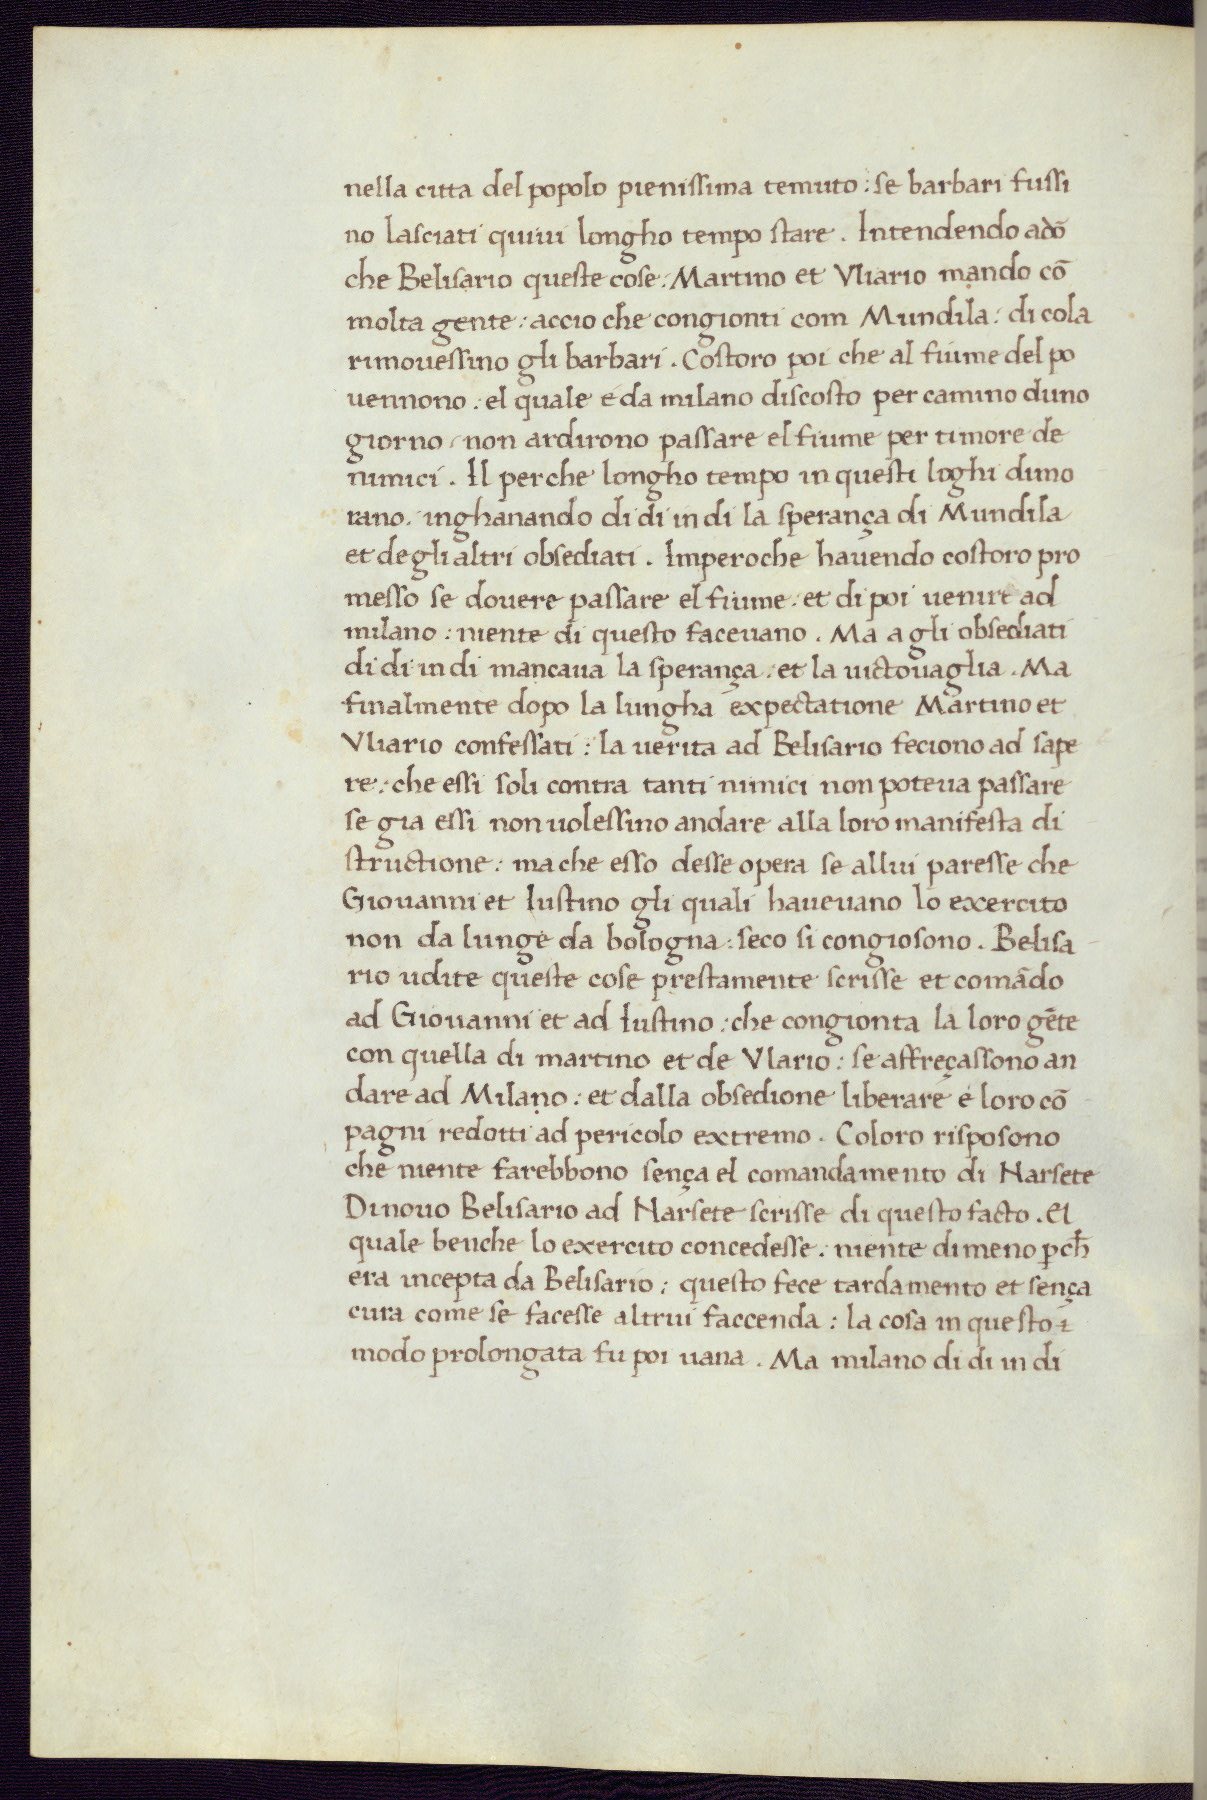 nella citta del popolo pienissima temuto : se barbari fussi
no lasciati quiui longho tempo stare . Intendendo adō
che Belisario queste cose : Martino et Vliario mando cō
molta gente : accio che congionti com Mundila : di cola
rimouessino gli barbari . Costoro poi che al fiume del po
uennono : el quale e da milano discosto per camino duno
giorno , non ardirono passare el fiume per timore de
nimici . Il perche longho tempo in questi loghi dimo
rano , inghanando di di in di la sperança di Mundila
et degli altri obsediati . Imperoche hauendo costoro pro
messo se douere passare el fiume : et di poi uenire ad
milano : niente di questo faceuano . Ma a gli obsediati
di di in di mancaua la sperança : et la uictouaglia . Ma
finalmente dopo la lungha expectatione Martino et
Vliario confessati : la uerita ad Belisario feciono ad sape
re : che essi soli contra tanti nimici non poteua passare
se gia essi non uolessino andare alla loro manifesta di
structione : ma che esso desse opera se allui paresse che
Giouanni et Iustino gli quali haueuano lo exercito
non da lunge da bologna : seco si congiosono . Belisa
rio udite queste cose prestamente scrisse et comādo
ad Giouanni et ad Iustino : che congionta la loro gēte
con quella di martino et de Vlario : se affreçassono an
dare ad Milano : et dalla obsedione liberare e loro cō
pagni redotti ad pericolo extremo . Coloro risposono
che niente farebbono sença el comandamento di Narsete
Dinouo Belisario ad Narsete scrisse di questo facto . El
quale benche lo exercito concedesse . niente dimeno ꝑch̄
era incepta da Belisario : questo fece tardamento et sença
cura come se facesse altrui faccenda : la cosa in questo ī
modo prolongata fu poi uana . Ma milano di di in di